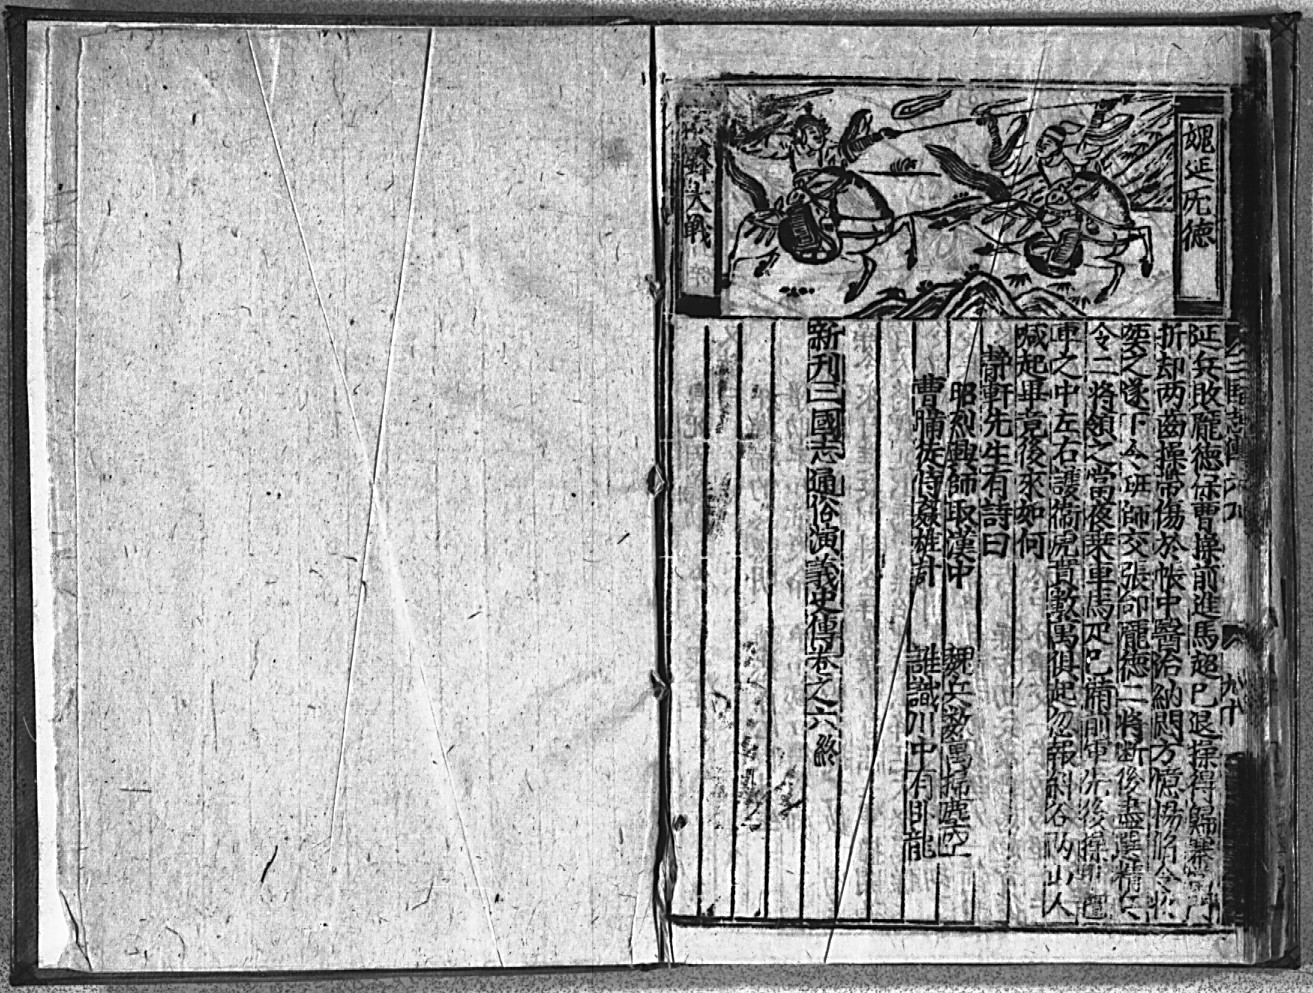 魏延龐德
大戰
延兵敗龐德保曹操前進馬超已退操得歸寨
折却兩齒操帶傷於帳中醫治納悶方憶楊脩令
葬之遂下令班師交張郃龐德二將斷後盡選精兵
令二將領之當夜乘車馬
車之中左右護衛虎賁數萬俱起忽報斜谷兩山人
喊起畢竟後來如何
靜軒先生有詩曰
昭烈興師取漢中 魏兵數萬掃塵空
曹瞞徒恃奸雄計 誰識川中有臥龍
新刊三國志通俗演義史傳卷之六終